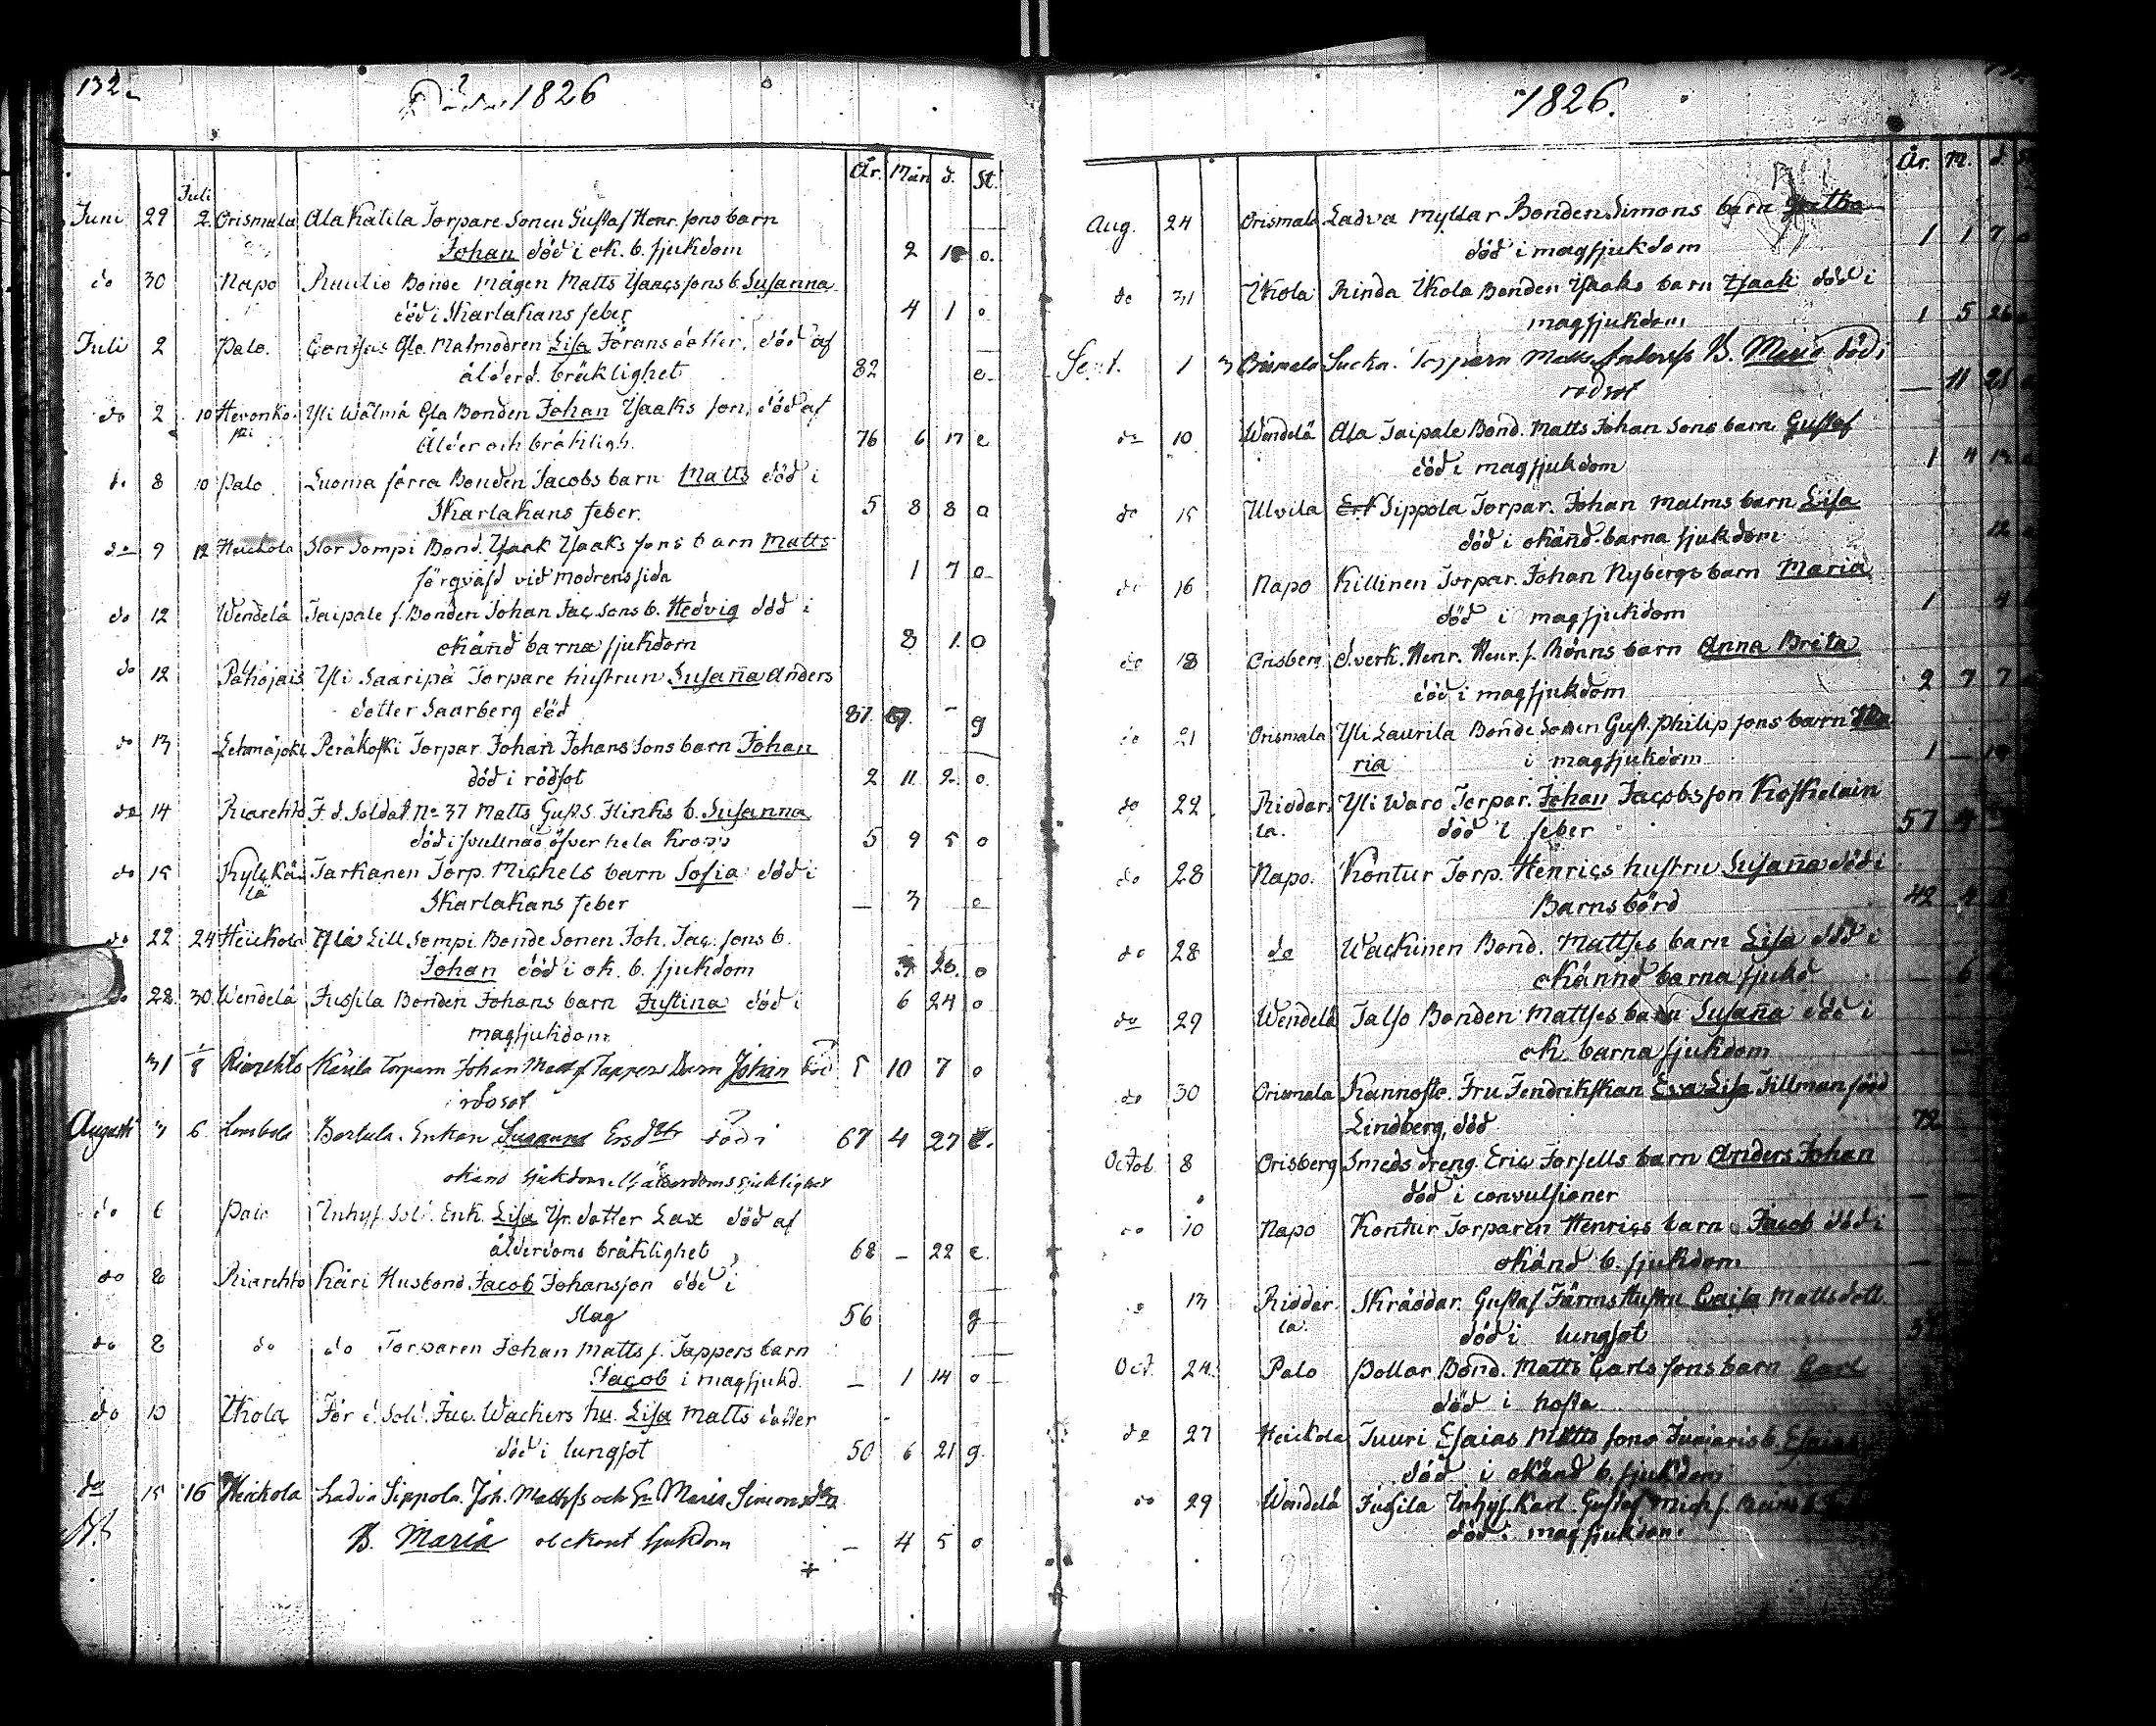 132.
Döde 1826
År. Mån d. St.
Juli
Juni 29 2 Orismala Ala Katila Torpare Sonen Gustaf Henr. sons barn
Johan död i ok. b. sjukdom 2 1 o.
do 30 Napo Rautio Bonde Mågen Matts Ysaacs sons b. Susanna
död i Skarlakans feber 4 1 o
Juli 2 Palo. Gla. Matmodren Lisa Jörans dotter, död af
ålderd. bräklighet 82 e
do 2 10 Heronkoski Yli Wälmä Gla Bonden Johan Ysaaks son, död af
Ålder och bräkligh. 76 6 17 e
do 8 10 Palo Luoma förra Bonden Jacobs barn Matts död i
Skarlakans feber. 5 8 8 o
do 9 12 Heickola Stor Sompi Bond. Ysaak Ysaaks sons barn Matts
förqväfd vid modrens sida 1 7 o
do 12 Wendelä Taipale f. Bonden Johan Jac. sons b. Hedvig död i
okänd barna sjukdom 8 1. o
do 12 Pähöjais Yli Saaripä Torpare hustrun Susana Anders
dotter Saarberg död 87. g
do 13 Lehmäjoki Peräkoski Torpar. Johan Johans sons barn Johan
död i rödsot 2 11. 2. o
do 14 Riarehto F. d. Soldat. No 37 Matts Gust S. Flinks b. Susanna
död i svullnad öfver hela kropp 5 9 5 o
do 15 Kylckälä Tarkanen Torp. Michels barn Sofia död i
Skarlakans feber — 3 o
do 22 24 Heickola Lill Sompi Bonde Sonen Joh. Jac. sons b.
Johan död i ok. b. sjukdom 26. o
do 28. 30. Wendelä Jussila Bonden Johans barn Justina död i 6 24 o
magsjukdom
31 1/8 Riarehto Torparn Johan Tappers Barn Johan död 5 10 7 o
i rödsot
Augusti 3 6 Bertula. Enkan Susanna Ersdotr död i 67 4 27 e.
okänd sjukdom
do 6 Palo Inhys. Sold. Enk. Lisa Yr. dotter Lax död af
ålderdoms bräklighet 68 — 22 e.
do 8 Riarehto Käri Husbond. Jacob Johansson död i
Slag 56 g
do 8 do do Torparen Johan Matts s. Tappers barn
Jacob i magsjukd. — 1 14 o
do 10 Ikola För d. Sold. Jac. Wackers hu. Lisa Matts dotter
död i lungsot 50 6 21 g.
do 15 16 Heickola Ladva Sippola. Joh. Mattss och Maria Simonsdr
B. Maria obekant sjukdom — 4 5 o
1826.
År. M. d.
Aug. 24 Orismala Ladva Myllar Bonden Simons barn
död i magsjukdom 1 1 7
do 31 Ikola Rinda Ikola Bonden Ysaaks barn Ysaak död i
magsjukdom 1 5 26
Sept. 1 3 Orismala Torparn Matts B. Maria död i
rödsot — 11 21
do 10 Wendelä Ala Taipale Bond. Matts Johan Sons barn Gustaf
död i magsjukdom 1 4
do 15 Ulvila Sippola Torpar. Johan Malms barn Lisa
död i okänd barna sjukdom 12
do 16 Napo Killinen Torpar. Johan Nybergs barn Maria
död i magsjukdom 1 4
do 18 Orisberg Henr. Henr. s. Rönns barn Anna Brita
död i magsjukdom 2 7 7
do 21 Orismala Yli Laurila Bonde Sonen Gust. Philip sons barn Ma
ria i magsjukdom 1 —
do 22 Riddar la. Yli Waro Torpar. Johan Jacobsson Koskelain
död i feber 57
do 28 Napo. Kontur Torp. Henrics hustru Susana död i
Barnsbörd 42
do 28 do Wackinen Bond. Mattses barn Lisa död i
okännd barna sjukd — 6
do 29 Wendelä Talso Bonden Mattses barn Susana död i
ok. barna sjukdom
do 30 Orismala Fru Fendrikskan Eva Lisa Tillman född
Lindberg, död 72
Octob. 8 Orisberg Smeds dreng. Eric Forsells barn Anders Johan
död i convulsioner
do 10 Napo Kontur Torparen Henrics barn Jacob död i
okänd b. sjukdom
13 Riddar la. Skräddar. Gustaf Färms Hustru Caisa Mattsdott.
död i lungsot
Oct. 24. Palo Pollar Bond. Matts Carls sons barn Carl
död i hosta
do 27 Heickola Juuri Esaias Matts sons b. Esaias
död i okänd b. sjukdom
do 29 Wendelä Jussila Inhys. Karl. Gustaf
död i magsjukdom